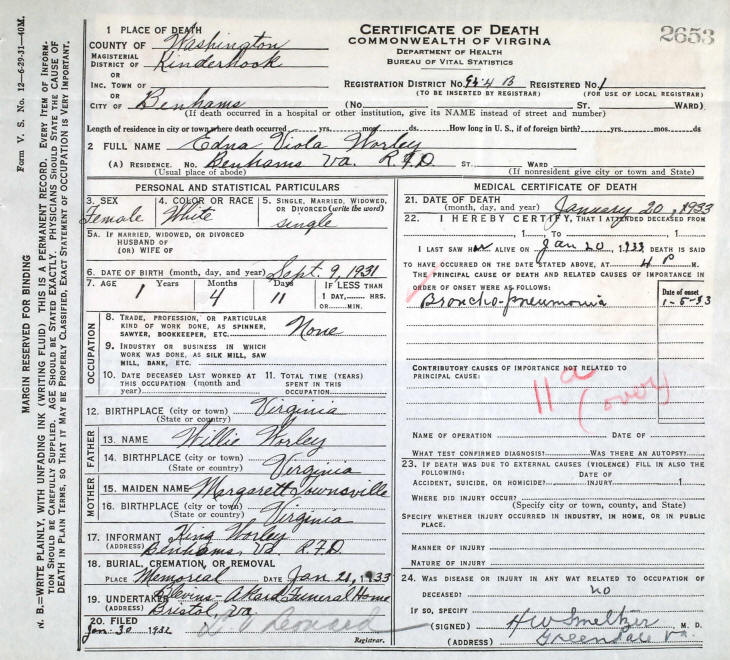 Form V. S. No. 12—6-29-31—40M.
MARGIN RESERVED FOR BINDING
N. B.=WRITE PLAINLY, WITH UNFADING INK (WRITING FLUID) THIS IS A PERMANENT RECORD. EVERY ITEM OF INFORM-
TION SHOULD BE CAREFULLY SUPPLIED. AGE SHOULD BE STATED EXACTLY. PHYSICIANS SHOULD STATE THE CAUSE OF
DEATH IN PLAIN TERMS, SO THAT IT MAY BE PROPERLY CLASSIFIED. EXACT STATEMENT OF OCCUPATION IS VERY IMPORTANT.
CERTIFICATE OF DEATH
COMMONWEALTH OF VIRGINIA
DEPARTMENT OF HEALTH
BUREAU OF VITAL STATISTICS
2653
1 PLACE OF DEATH
COUNTY OF Washington
MAGISTERIAL
DISTRICT OF Kinderhook
OR
INC. TOWN OF
OR
CITY OF Benhams
REGISTRATION DISTRICT No. 954 B REGISTERED No. 1
(TO BE INSERTED BY REGISTRAR) (FOR USE OF LOCAL REGISTRAR)
(No. ST. WARD)
(If death occurred in a hospital or other institution, give its NAME instead of street and number)
Length of residence in city or town where death occurred yrs. mos. ds. How long in U. S., if of foreign birth? yrs. mos. ds
2 FULL NAME Edna Viola Worley
(A) RESIDENCE. No. Benhams Va. R.F.D ST. WARD
(Usual place of abode) (If nonresident give city or town and State)
PERSONAL AND STATISTICAL PARTICULARS
3. SEX Female
4. COLOR OR RACE White
5. SINGLE, MARRIED, WIDOWED, OR DIVORCED (write the word) single
5A. IF MARRIED, WIDOWED, OR DIVORCED
HUSBAND OF
(OR) WIFE OF
6. DATE OF BIRTH (month, day, and year) Sept. 9, 1931
7. AGE 1 Years 4 Months 11 Days IF LESS THAN
1 DAY, HRS.
OR MIN.
OCCUPATION
8. TRADE, PROFESSION, OR PARTICULAR
KIND OF WORK DONE, AS SPINNER,
SAWYER, BOOKKEEPER, ETC. None
9. INDUSTRY OR BUSINESS IN WHICH
WORK WAS DONE, AS SILK MILL, SAW
MILL, BANK, ETC.
10. DATE DECEASED LAST WORKED AT
THIS OCCUPATION (month and
year)
11. TOTAL TIME (YEARS)
SPENT IN THIS
OCCUPATION
12. BIRTHPLACE (city or town) Virginia
(State or country)
FATHER
13. NAME Willie Worley
14. BIRTHPLACE (city or town)
(State or country) Virginia
MOTHER
15. MAIDEN NAME Margarett Townsville
16. BIRTHPLACE (city or town)
(State or country) Virginia
17. INFORMANT King Worley
(ADDRESS) Benhams, Va. R.F.D.
18. BURIAL, CREMATION, OR REMOVAL
PLACE Memoreal DATE Jan 21, 1933
19. UNDERTAKER Blevins-Akard Funeral Home
(ADDRESS) Bristol, Va
20. FILED
Jan. 30 1932 Leonard
Registrar.
MEDICAL CERTIFICATE OF DEATH
21. DATE OF DEATH
(month, day, and year) January 20, 1933
22. I HEREBY CERTIFY, THAT I ATTENDED DECEASED FROM
, 1 , TO , 1
I LAST SAW Her ALIVE ON Jan 20, 1933 DEATH IS SAID
TO HAVE OCCURRED ON THE DATE STATED ABOVE, AT 4 P M.
THE PRINCIPAL CAUSE OF DEATH AND RELATED CAUSES OF IMPORTANCE IN
ORDER OF ONSET WERE AS FOLLOWS:
Date of onset
Broncho-pneumonia 1-5-33
CONTRIBUTORY CAUSES OF IMPORTANCE NOT RELATED TO
PRINCIPAL CAUSE:
11a
(over)
NAME OF OPERATION DATE OF
WHAT TEST CONFIRMED DIAGNOSIS? WAS THERE AN AUTOPSY?
23. IF DEATH WAS DUE TO EXTERNAL CAUSES (VIOLENCE) FILL IN ALSO THE
FOLLOWING:
ACCIDENT, SUICIDE, OR HOMICIDE? DATE OF INJURY 1
WHERE DID INJURY OCCUR?
(Specify city or town, county, and State)
SPECIFY WHETHER INJURY OCCURRED IN INDUSTRY, IN HOME, OR IN PUBLIC
PLACE.
MANNER OF INJURY
NATURE OF INJURY
24. WAS DISEASE OR INJURY IN ANY WAY RELATED TO OCCUPATION OF
DECEASED? no
IF SO, SPECIFY
(SIGNED) HW Smeltzer M. D.
(ADDRESS) Greendale Va.